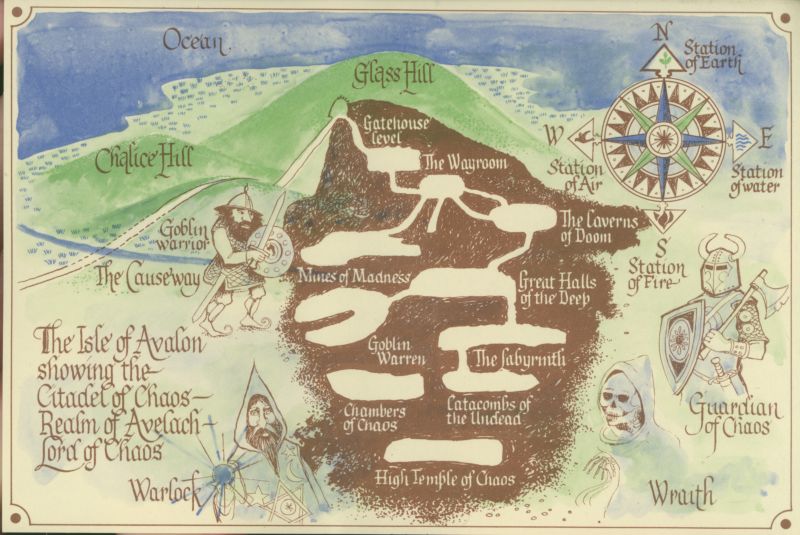 Ocean
Glass Hill
Chalice Hill
Gatehouse
level
The Wayroom
N
Station
of Earth
W
Station
of Air
E
Station
of water
S
Station
of Fire
Goblin
warrior
The Causeway
The Caverns
of Doom
Mines of Madness
Great Halls
of the Deep
Goblin
Warren
The Labyrinth
Chambers
of Chaos
Catacombs of
the Undead
High Temple of Chaos
The Isle of Avalon
showing the—
Citadel of Chaos—
Realm of Avelach—
Lord of Chaos
Warlock
Guardian
of Chaos
Wraith